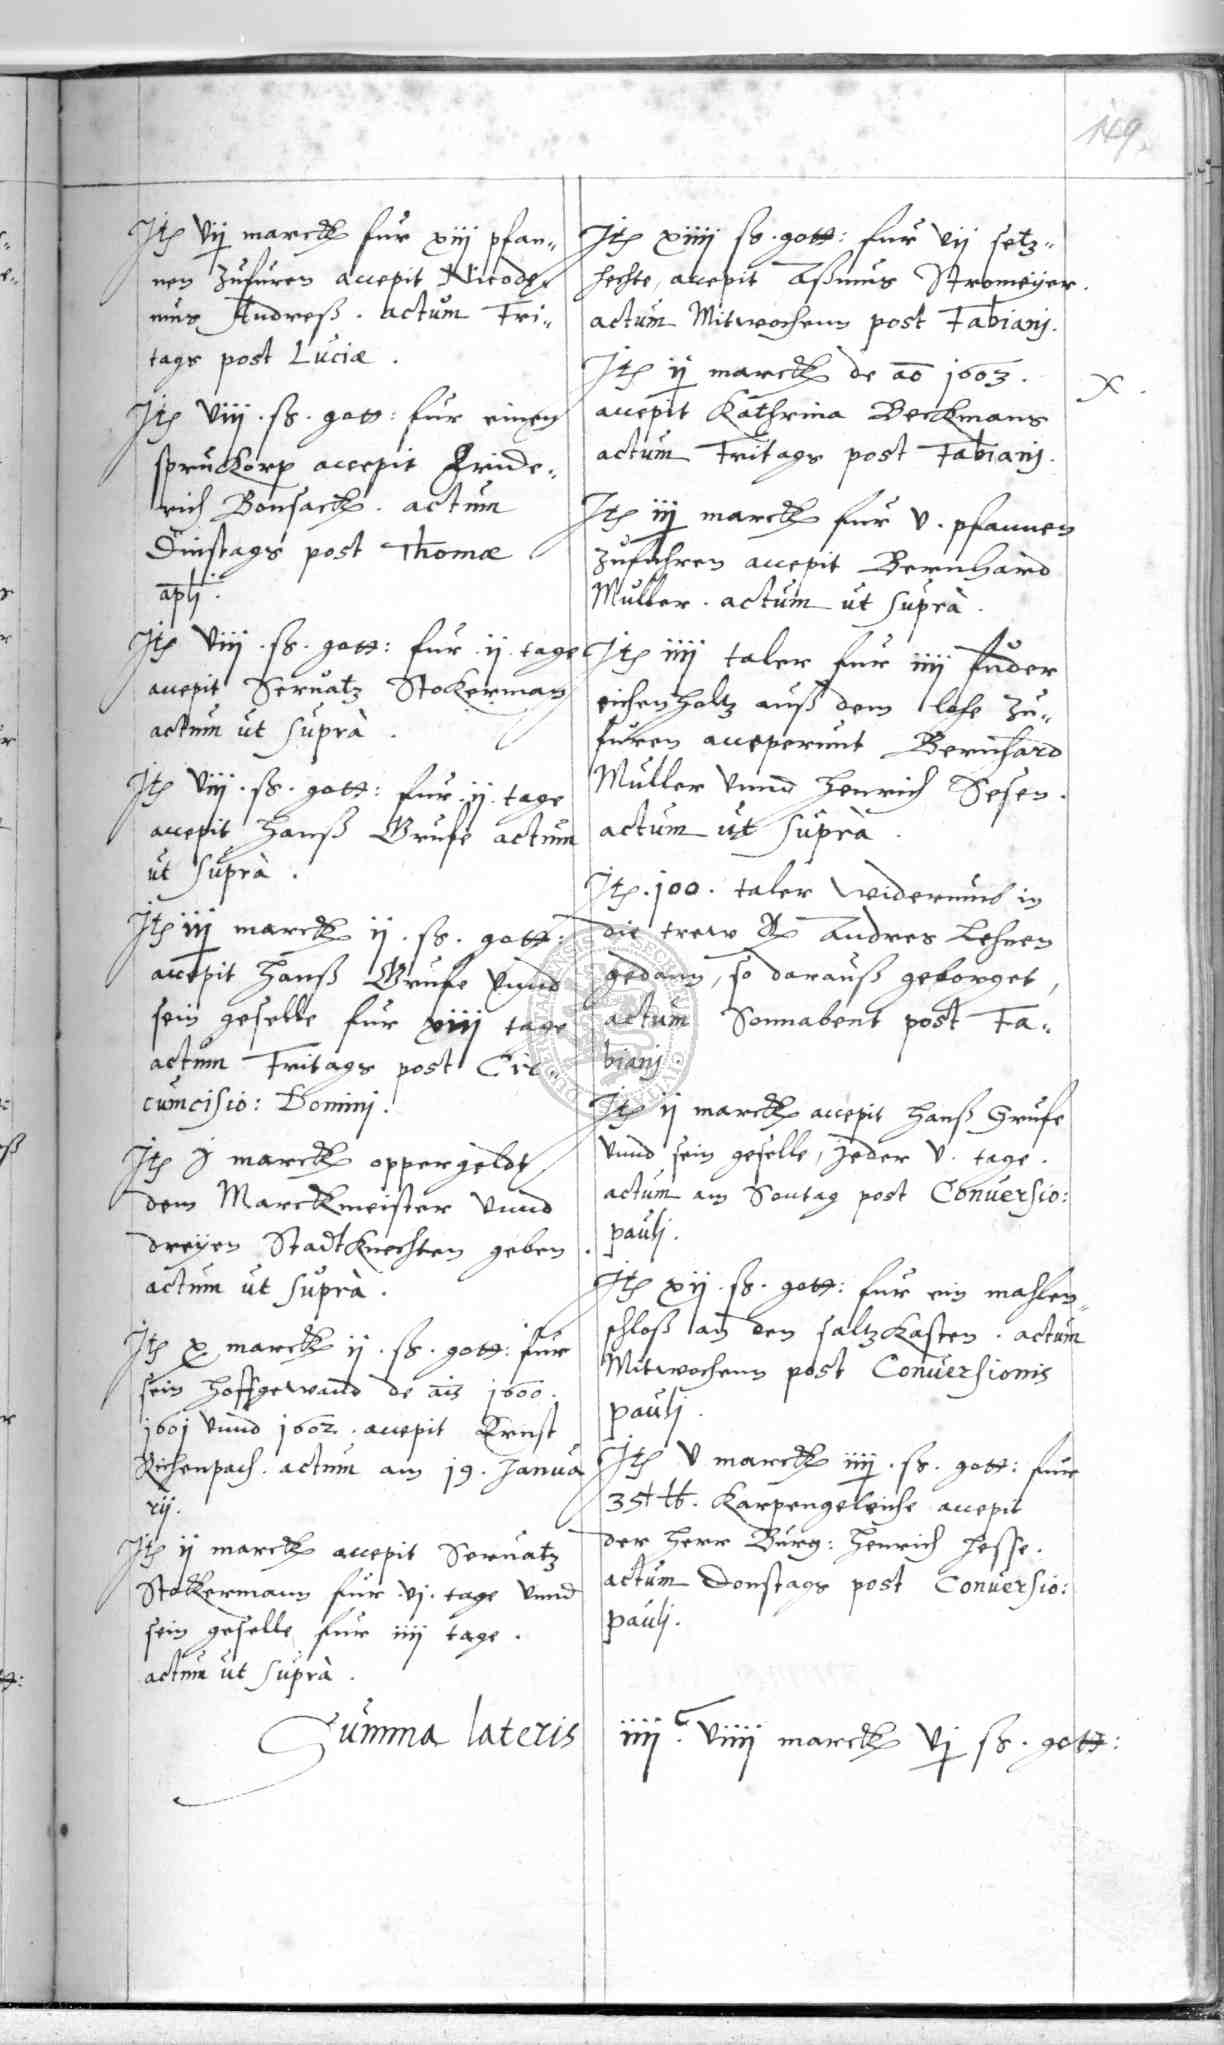 149.
Itē vij marck fur xiij pfan-
nen zufuren accepit Nicode-
mus Andreß . actum Fri-
tags post Luciæ .
Itē viij . ß . gott: fur einen
spruckorp accepit Fride-
rich Bonsack . actum
Dinstags post Thomæ
apli .
Itē viij . ß . gott: fur . ij . tage
accepit Seruatz Stockerman
actum ut suprà .
Itē viij . ß . gott: fur . ij . tage
accepit Hanß Grufe actum
ut suprà .
Itē iij marck ij . ß . gott:
accepit Hanß Grufe vnnd
sein geselle fur xiij tage
actum Fritags post Cir-
cumcisio: Domini .
Itē j marck oppergeldt
dem Marckmeister vnnd
dreyen Stadtknechten geben .
actum ut suprà .
Itē x marck ij . ß . gott: fur
sein hoffgewand de ais 1600 .
1601 vnnd 1602 . accepit Ernst
Richenpach . actum am 19 . Janua
rij .
Itē ij marck accepit Seruatz
Stockermann fur vj . tage vnnd
sein geselle fur iiij tage .
actum ut suprà .
Itē xiiij ß . gott: fur vij setz-
hechte, accepit Aßmus Stromeyer .
actum Mitwochenn post Fabianj .
Itē ij marck de ao 1603 . X .
accepit Kathrina Beckmans
actum Fritags post Fabianj .
Itē iij marck fur v . pfannen
zufuhren accepit Bernhard
Muller . actum ut suprà .
Itē iiij taler fur iiij fuder
eichenholtz auß dem lohe zu-
furen acceperunt Bernhard
Muller vnnd Henrich Sesen .
actum ut suprà .
Itē . 100 . taler widerumb in
die trew Andres Lehnen
gedann, so darauß geborget,
actum Sonnabent post Fa-
bianj
Itē ij marck accepit Hanß Grufe
vnnd sein geselle, jeder v . tage .
actum am Sontag post Conuersio:
paulj .
Itē xij . ß . gott: fur ein mahlen-
schloß an den saltzkasten . actum
Mitwochenn post Conuersionis
paulj .
Itē v marck iiij . ß . gott: fur
35 ℔ . Karpengeleiche accepit
der Herr Burg: Henrich Hesse .
actum Donstags post Conuersio:
paulj .
Summa lateris iiij c . viiij marck vj ß . gott: